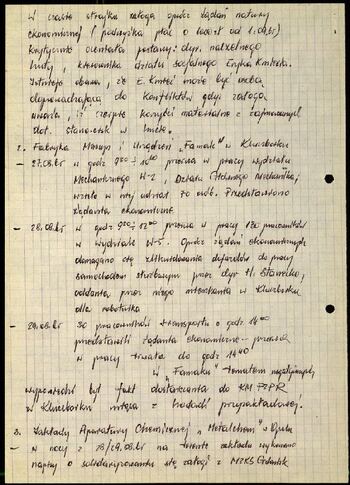 W czasie strajku załoga oprócz żądań natury
ekonomicznej (podwyżka płac o 1000 zł od 1.09.br)
krytycznie oceniała postawy: dyr. naczelnego
huty, kierownika działu socjalnego Eryka Kmiecia.
Istnieje obawa, że E. Kmieć może być osobą
doprowadzającą do konfliktów gdyż załoga
uważa, iż czerpie korzyści materialne z zajmowanych
dot. stanowisk w hucie.
2. Fabryka Maszyn i Urządzeń "Famak" w Kluczborku
- 27.08.br w godz 9 00 - 10 40 przerwa w pracy wydziału
Mechanicznego W-2, Działu Głównego Mechanika,
wzięło w niej udział 70 osób. Przedstawiono
żądania ekonomiczne.
- 28.08.br w godz 9 20 - 12 00 przerwa w pracy 120 pracowników
w wydziale W-5. Oprócz żądań ekonomicznych
domagano się zlikwidowania dojazdów do pracy
samochodem służbowym przez dyr H.
oddania przez niego mieszkania w Kluczborku
dla robotnika
- 29.08.br 30 pracowników transportu o godz 14 00
przedstawili żądania ekonomiczne - przerwa
w pracy trwała do godz 14 40
W "Famaku" tematem negatywnych
wypowiedzi był fakt dostarczenia do KM PZPR
w Kluczborku mięsa z hodowli przyzakładowej.
3. Zakłady Aparatury Chemicznej "Metalchem" w Opolu
- w nocy z 28/29.08.br na terenie zakładu wykonano
napisy o solidaryzowaniu się załogi z MZKS Gdańsk